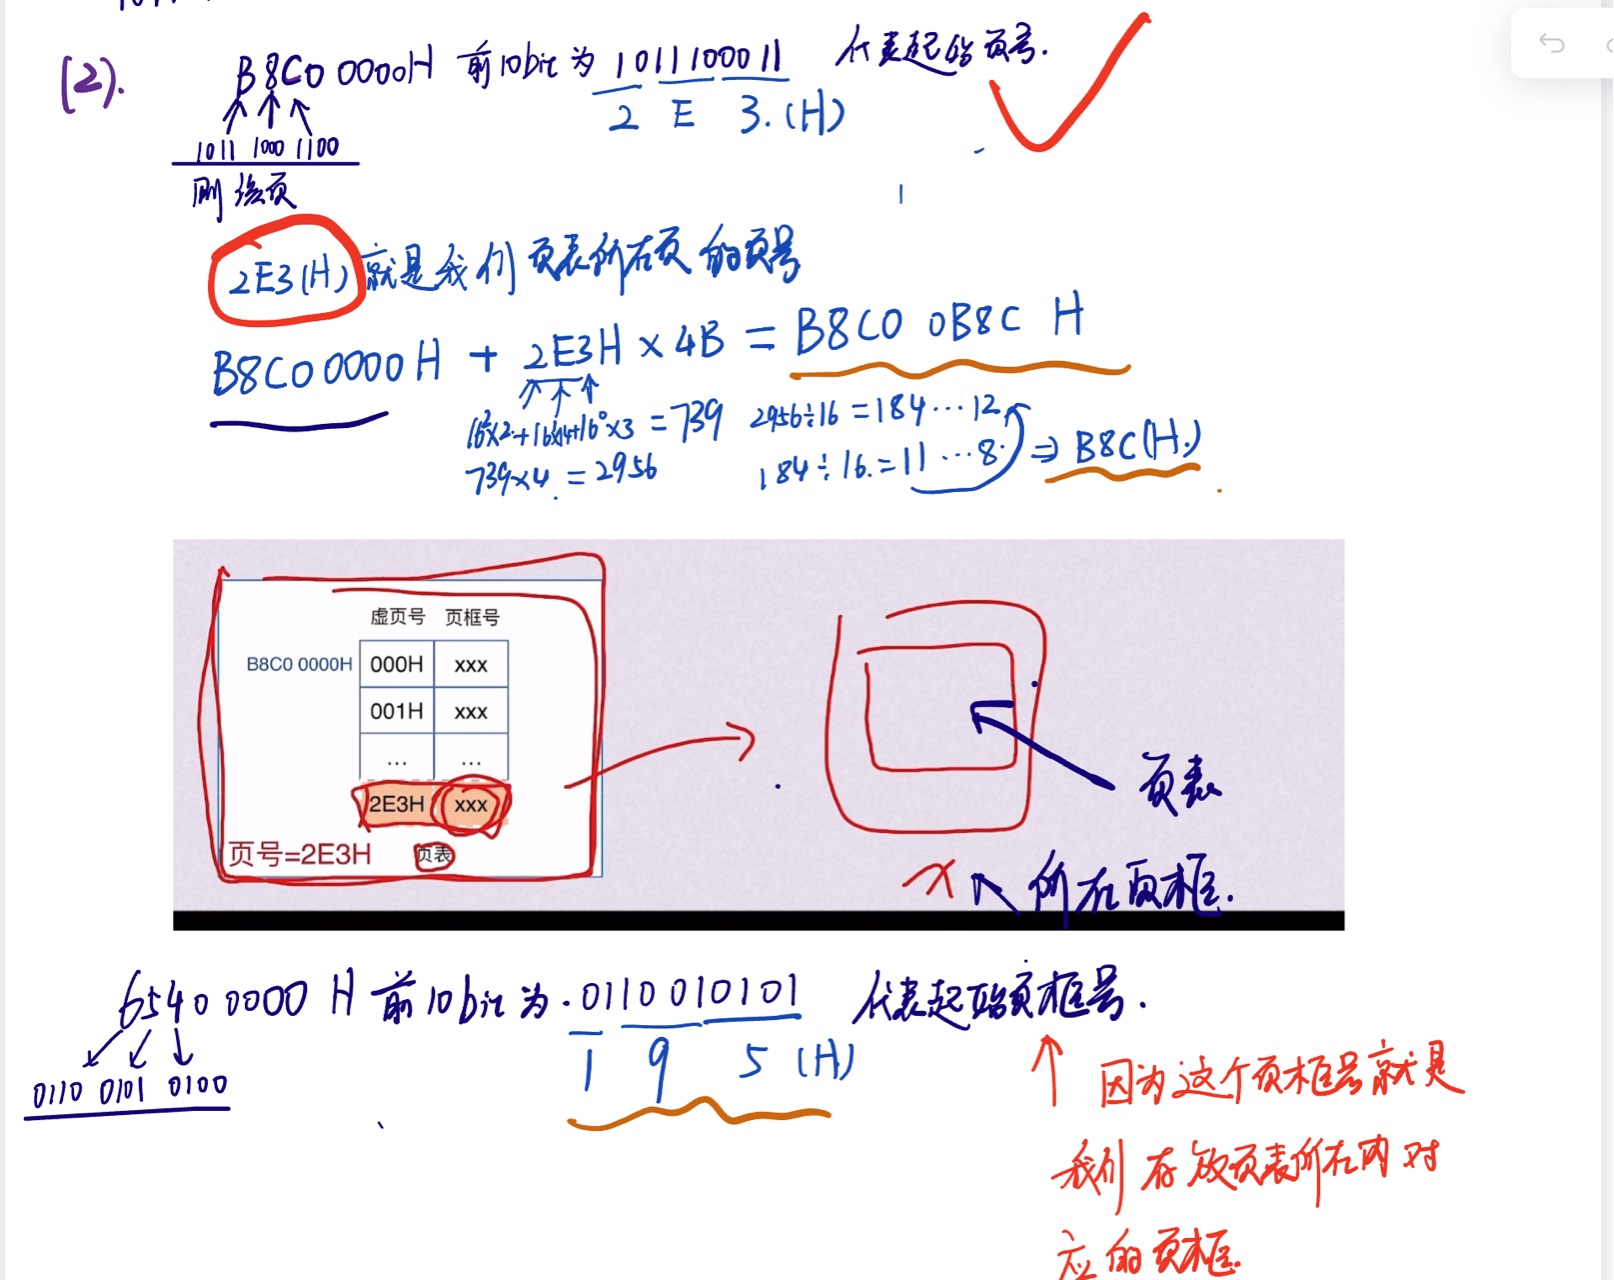 (2). B8C0 0000H 前10bit为 1011100011 代表起始页号.
2 E 3.(H)
1011 1000 1100
则该页
2E3(H) 就是我们页表所在页的页号
B8C0 0000 H + 2E3H × 4B = B8C0 0B8C H
16²×2+16×14+16⁰×3 = 739 2956÷16 = 184 … 12
739×4 = 2956 184÷16 = 11 … 8 ⇒ B8C(H.)
虚页号 页框号
B8C0 0000H 000H xxx
001H xxx
... ...
2E3H xxx
页号=2E3H 页表
页表
所在页框.
6540 0000 H 前10bit为 0110010101 代表起始页框号.
1 9 5 (H)
0110 0101 0100
因为这个页框号就是
我们存放页表所在内对
应的页框.